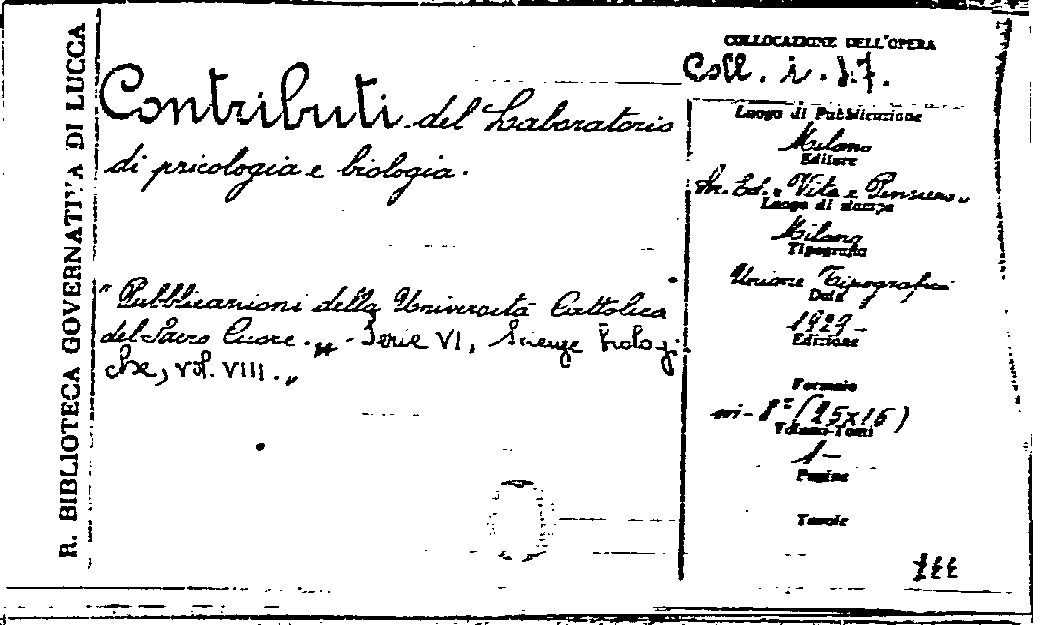 R. BIBLIOTECA GOVERNATIVA DI LUCCA
Contributi del Laboratorio
di psicologia e biologia.
"Pubblicazioni della Università Cattolica
del Sacro Cuore." - Serie VI, Scienze Biologi
che, vol. VIII.„
COLLOCAZIONE DELL'OPERA
Coll. i. 87.
Luogo di Pubblicazione
Milano
Editore
Ed. "Vita e Pensiero"
Luogo di stampa
Milano
Tipografia
Unione Tipografica
Data
1929-
Edizione
Formato
in-8° (25x16)
Volume-Tomi
1-
Pagine
Tavole